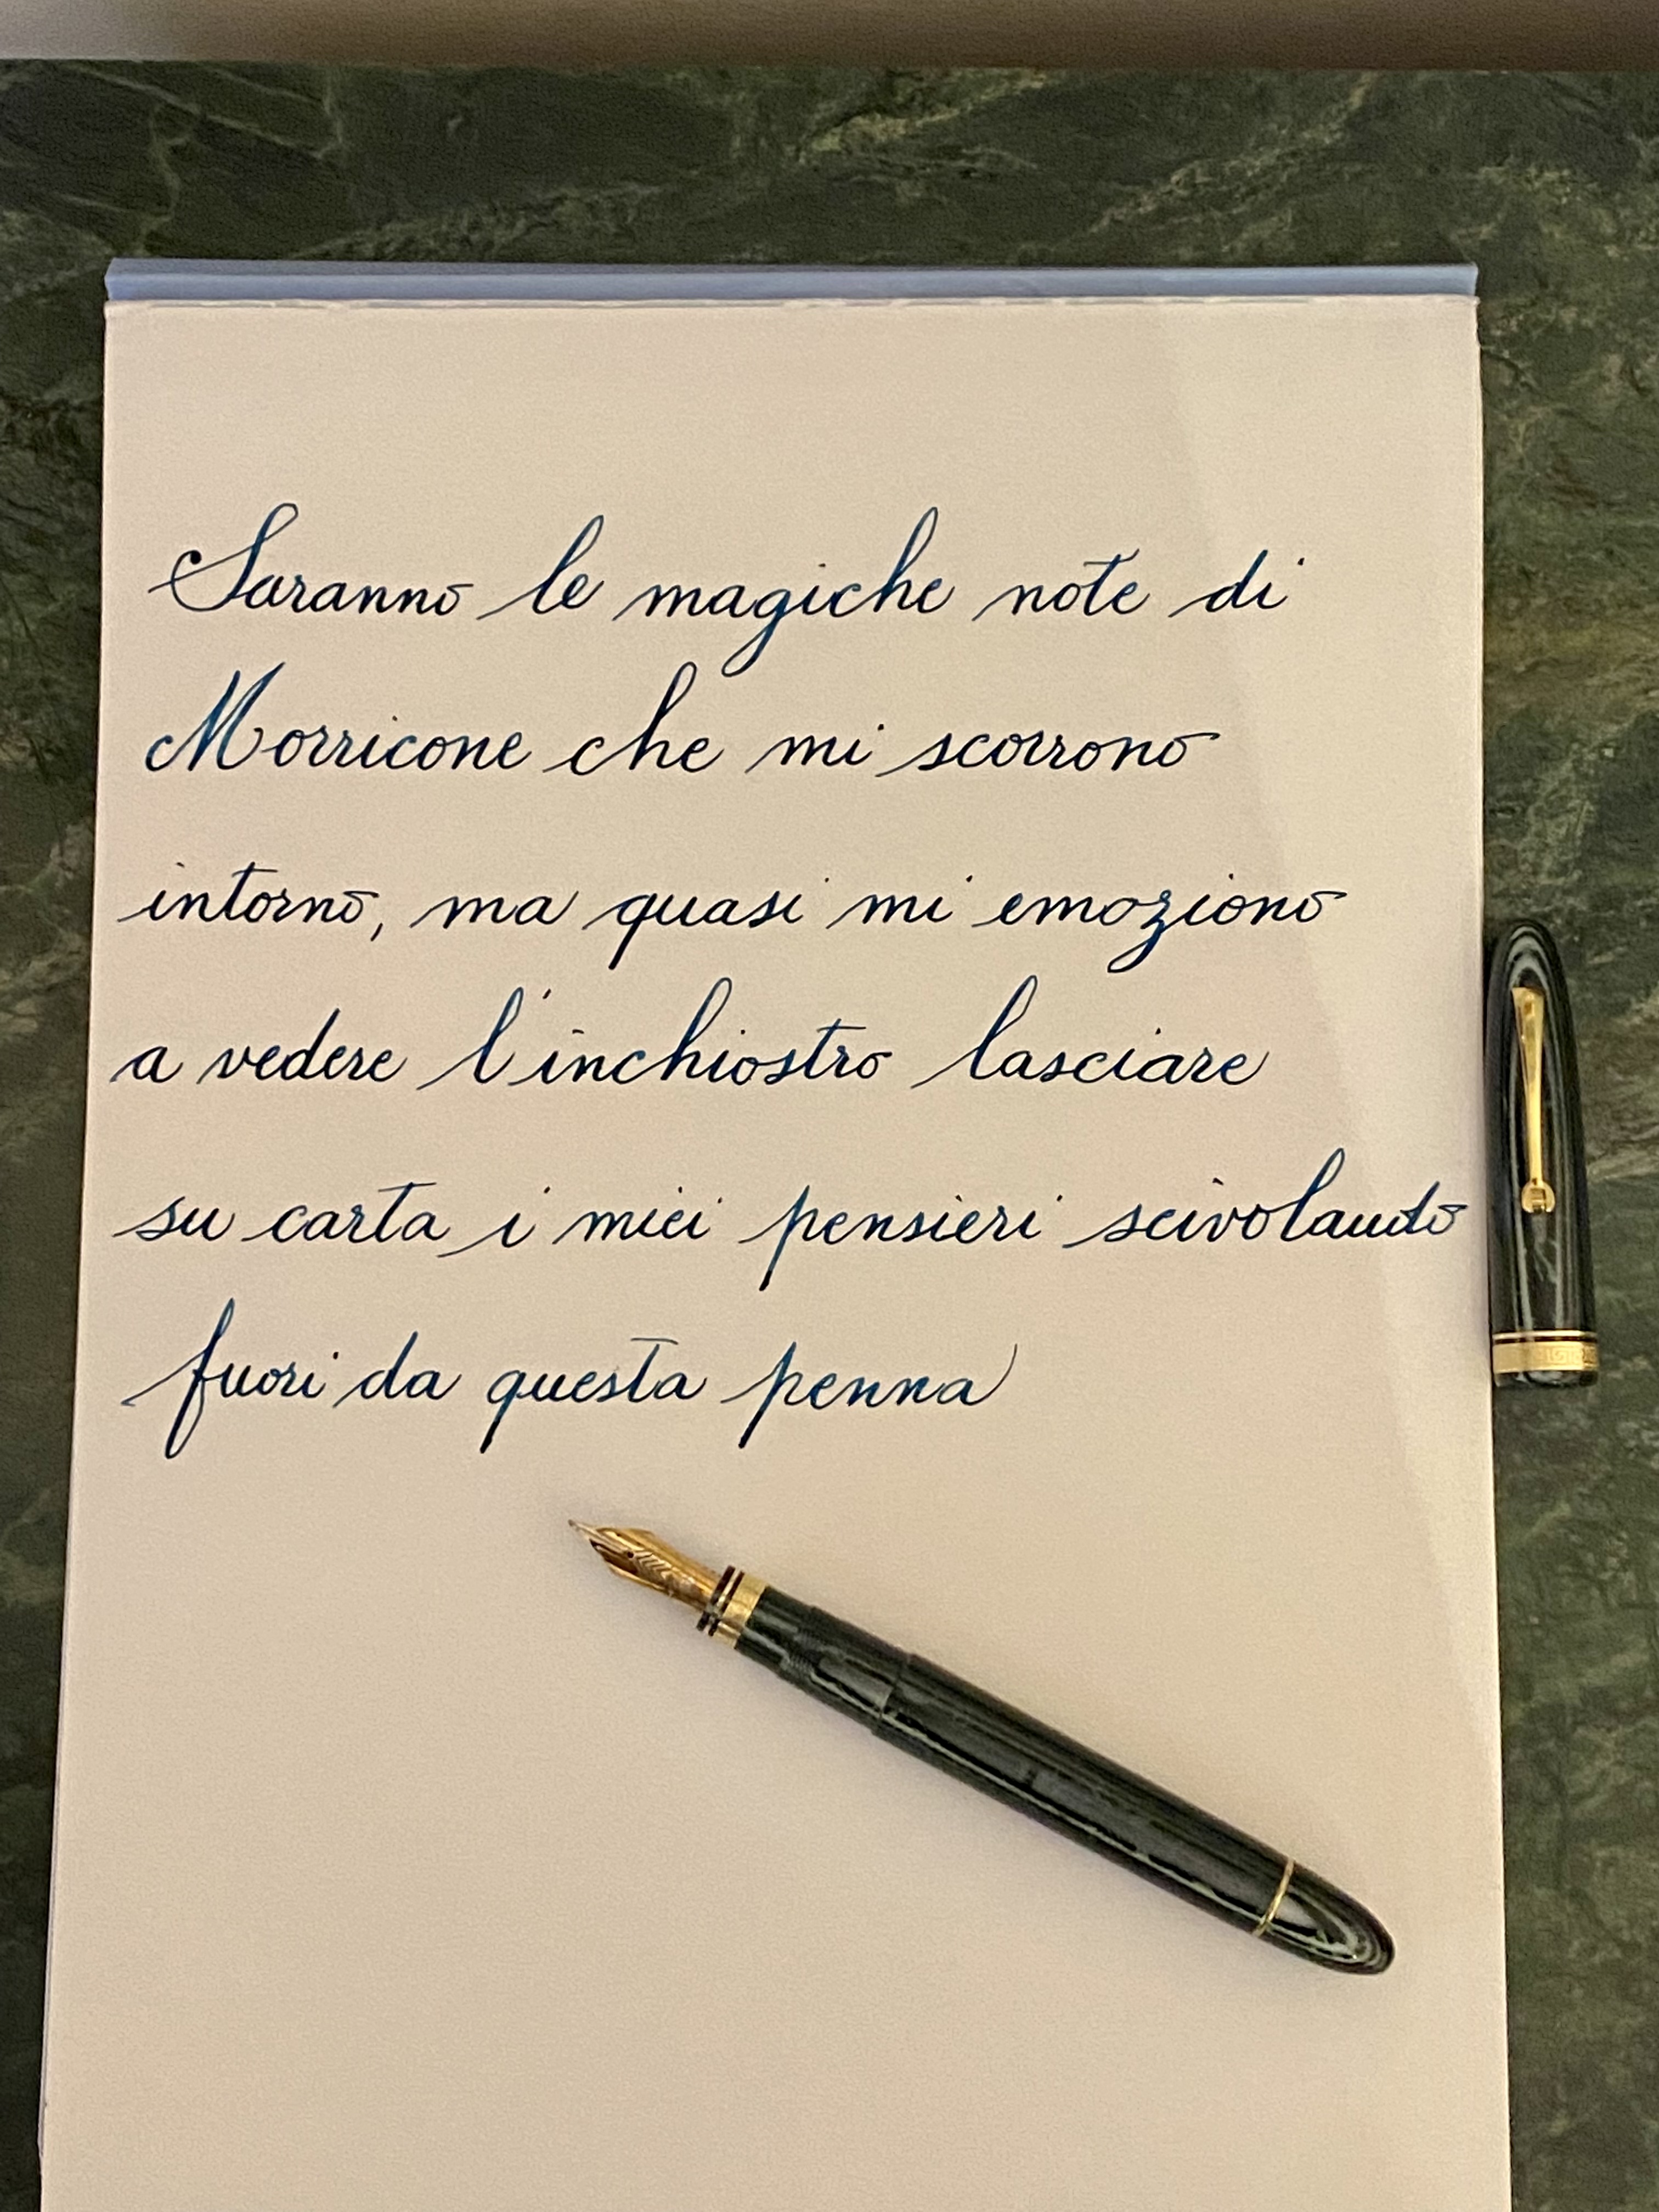 Saranno le magiche note di
Morricone che mi scorrono
intorno, ma quasi mi emoziono
a vedere l'inchiostro lasciare
su carta i miei pensieri scivolando
fuori da questa penna